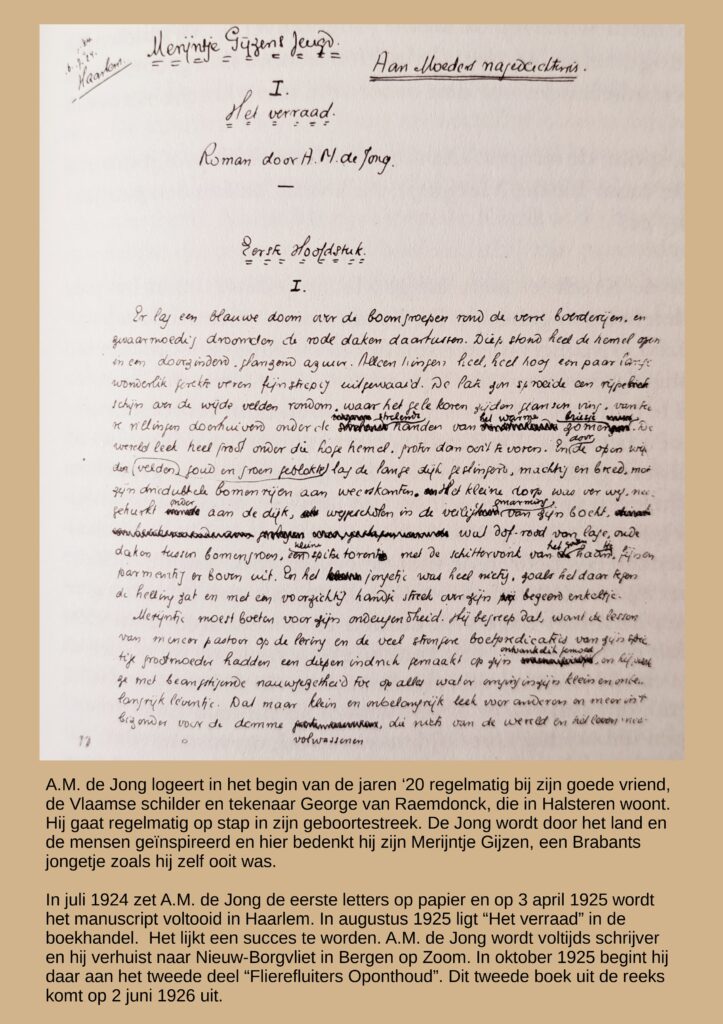 Haarlem.
Merijntje Gijzens Jeugd.
Aan Moeders nagedachtenis.
I.
Het verraad.
Roman door A. M. de Jong.
Eerste Hoofdstuk.
I.
Er lag een blauwe doom over de boomgroepen rond de verre boerderijen, en
zwaarmoedig droomden de rode daken daartussen. Diep stond heel de hemel open
in een doorzinderd, glanzend azuur. Alleen hingen heel, heel hoog een paar lange
wonderlik gerekte veren fijnstrepig uitgewaaid. De late zon spreidde een
schijn over de wijde velden rondom, waar het gele koren zijden glansen ving,
rillingen doorhuiverd onder de strelende handen van
wereld leek heel groot onder die hoge hemel, groter dan ooit te voren. En door de open
velden, goud en groen geblokt, lag de lange dijk geslingerd, machtig en breed, met
zijn driedubbele bomenrijen aan weerskanten. Het kleine dorp was ver weg,
gehurkt onder aan de dijk, weggeschoten in de veilige omarming van zijn bocht,
wat dof-rood van lage, oude
daken tussen bomengroen, kleine spitse toren met de schittervonk van het haantje
parmantig er boven uit. En het jongetje was heel nietig, zoals het daar tegen
de helling zat en met een voorzichtig handje streek over zijn bezeerd enkeltje.
Merijntje moest boeten voor zijn ondeugendheid. Hij begreep dat, want de lessen
van meneer pastoor op de lering en de veel strengere boetpredicaties van zijn
grootmoeder hadden een diepen indruk gemaakt op zijn ontvankelik gemoed, en hij
met beangstigende nauwgezetheid toe op alles wat er omging in zijn klein en
langrijk leventje. Dat maar klein en onbelangrijk leek voor anderen en meer in 't
bizonder voor de domme volwassenen, die niets van de wereld en het leven
A.M. de Jong logeert in het begin van de jaren ‘20 regelmatig bij zijn goede vriend,
de Vlaamse schilder en tekenaar George van Raemdonck, die in Halsteren woont.
Hij gaat regelmatig op stap in zijn geboortestreek. De Jong wordt door het land en
de mensen geïnspireerd en hier bedenkt hij zijn Merijntje Gijzen, een Brabants
jongetje zoals hij zelf ooit was.
In juli 1924 zet A.M. de Jong de eerste letters op papier en op 3 april 1925 wordt
het manuscript voltooid in Haarlem. In augustus 1925 ligt “Het verraad” in de
boekhandel.  Het lijkt een succes te worden. A.M. de Jong wordt voltijds schrijver
en hij verhuist naar Nieuw-Borgvliet in Bergen op Zoom. In oktober 1925 begint hij
daar aan het tweede deel “Flierefluiters Oponthoud”. Dit tweede boek uit de reeks
komt op 2 juni 1926 uit.